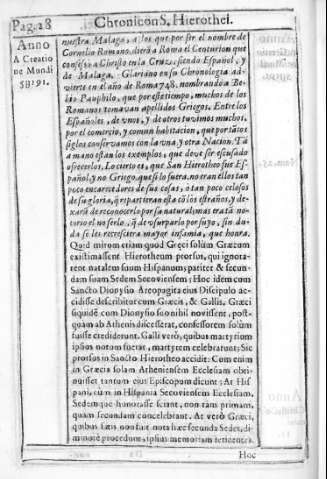 Pag. 28
Chronicon S. Hierothei.
Anno
A Creatio
ne Mundi
nuestra Malaga, a los que por ser el nombre de
Cornelio Romano, diera a Roma el Centurion que
confessò a Christo en la Cruz, siendo Español, y
de Malaga. Glariano en su Chronologia ad-
vierte en el año de Roma 748. nombrando a Be-
bio Pamphilo, que por este tiempo, muchos de los
Romanos tomavan apellidos Griegos. Entre los
Españoles, de vnos, y de otros tuvimos muchos,
por el comercio, y comun habitacion, que por tãtos
siglos conservamos con la vna, y otra Nacion. Tã
a mano estan los exemplos, que deve ser escusado
ofrecerlos. Lo cierto es, que San Hierotheo fue Es-
pañol, y no Griego, que si lo fuera, no eran ellos tan
poco encarecedores de sus cosas, ò tan poco celosos
de su gloria, q̃ repartieran esta cõ los estraños, y de-
xarã de reconocerlo por su natural; mas trata no-
torio el no serlo, q̃ de vsurparlo por suyo, sin du-
da se les recreciera mayor infamia, que honra.
Quid mirom etiam quod Græci solùm Græcum
existimassent Hierotheum prorsus, qui ignora-
rent natalem suum Hispanum; pariter & secun-
dam suam Sedem Secoviensem; Hoc idem cum
Sancto Dionysio Areopagita eius Discipulo ac-
cidisse describitur cum Græcis, & Gallis. Græci
siquidè cum Dionysio suo nihil novissent, post-
quam ab Athenis discesserat, confessorem solùm
fuisse crediderunt. Galli verò, quibus martyrium
ipsius notum fuerat, martyrem celebrarunt: Sic
prorsus in Sancto Hierotheo accidit. Cum enim
in Græcia solam Atheniensem Ecclesiam obti-
nuisset tantum eius Episcopum dicunt; At His
pani, cum in Hispania Secoviensem Ecclesiam,
Sedemque honorasse sciunt, non tàm primam,
quàm secundam concelebrant. At verò Græci,
quibus satis non fuit nota hæc secunda Sedes, di-
minutè procedunt, ipsius memoriam
Hoc